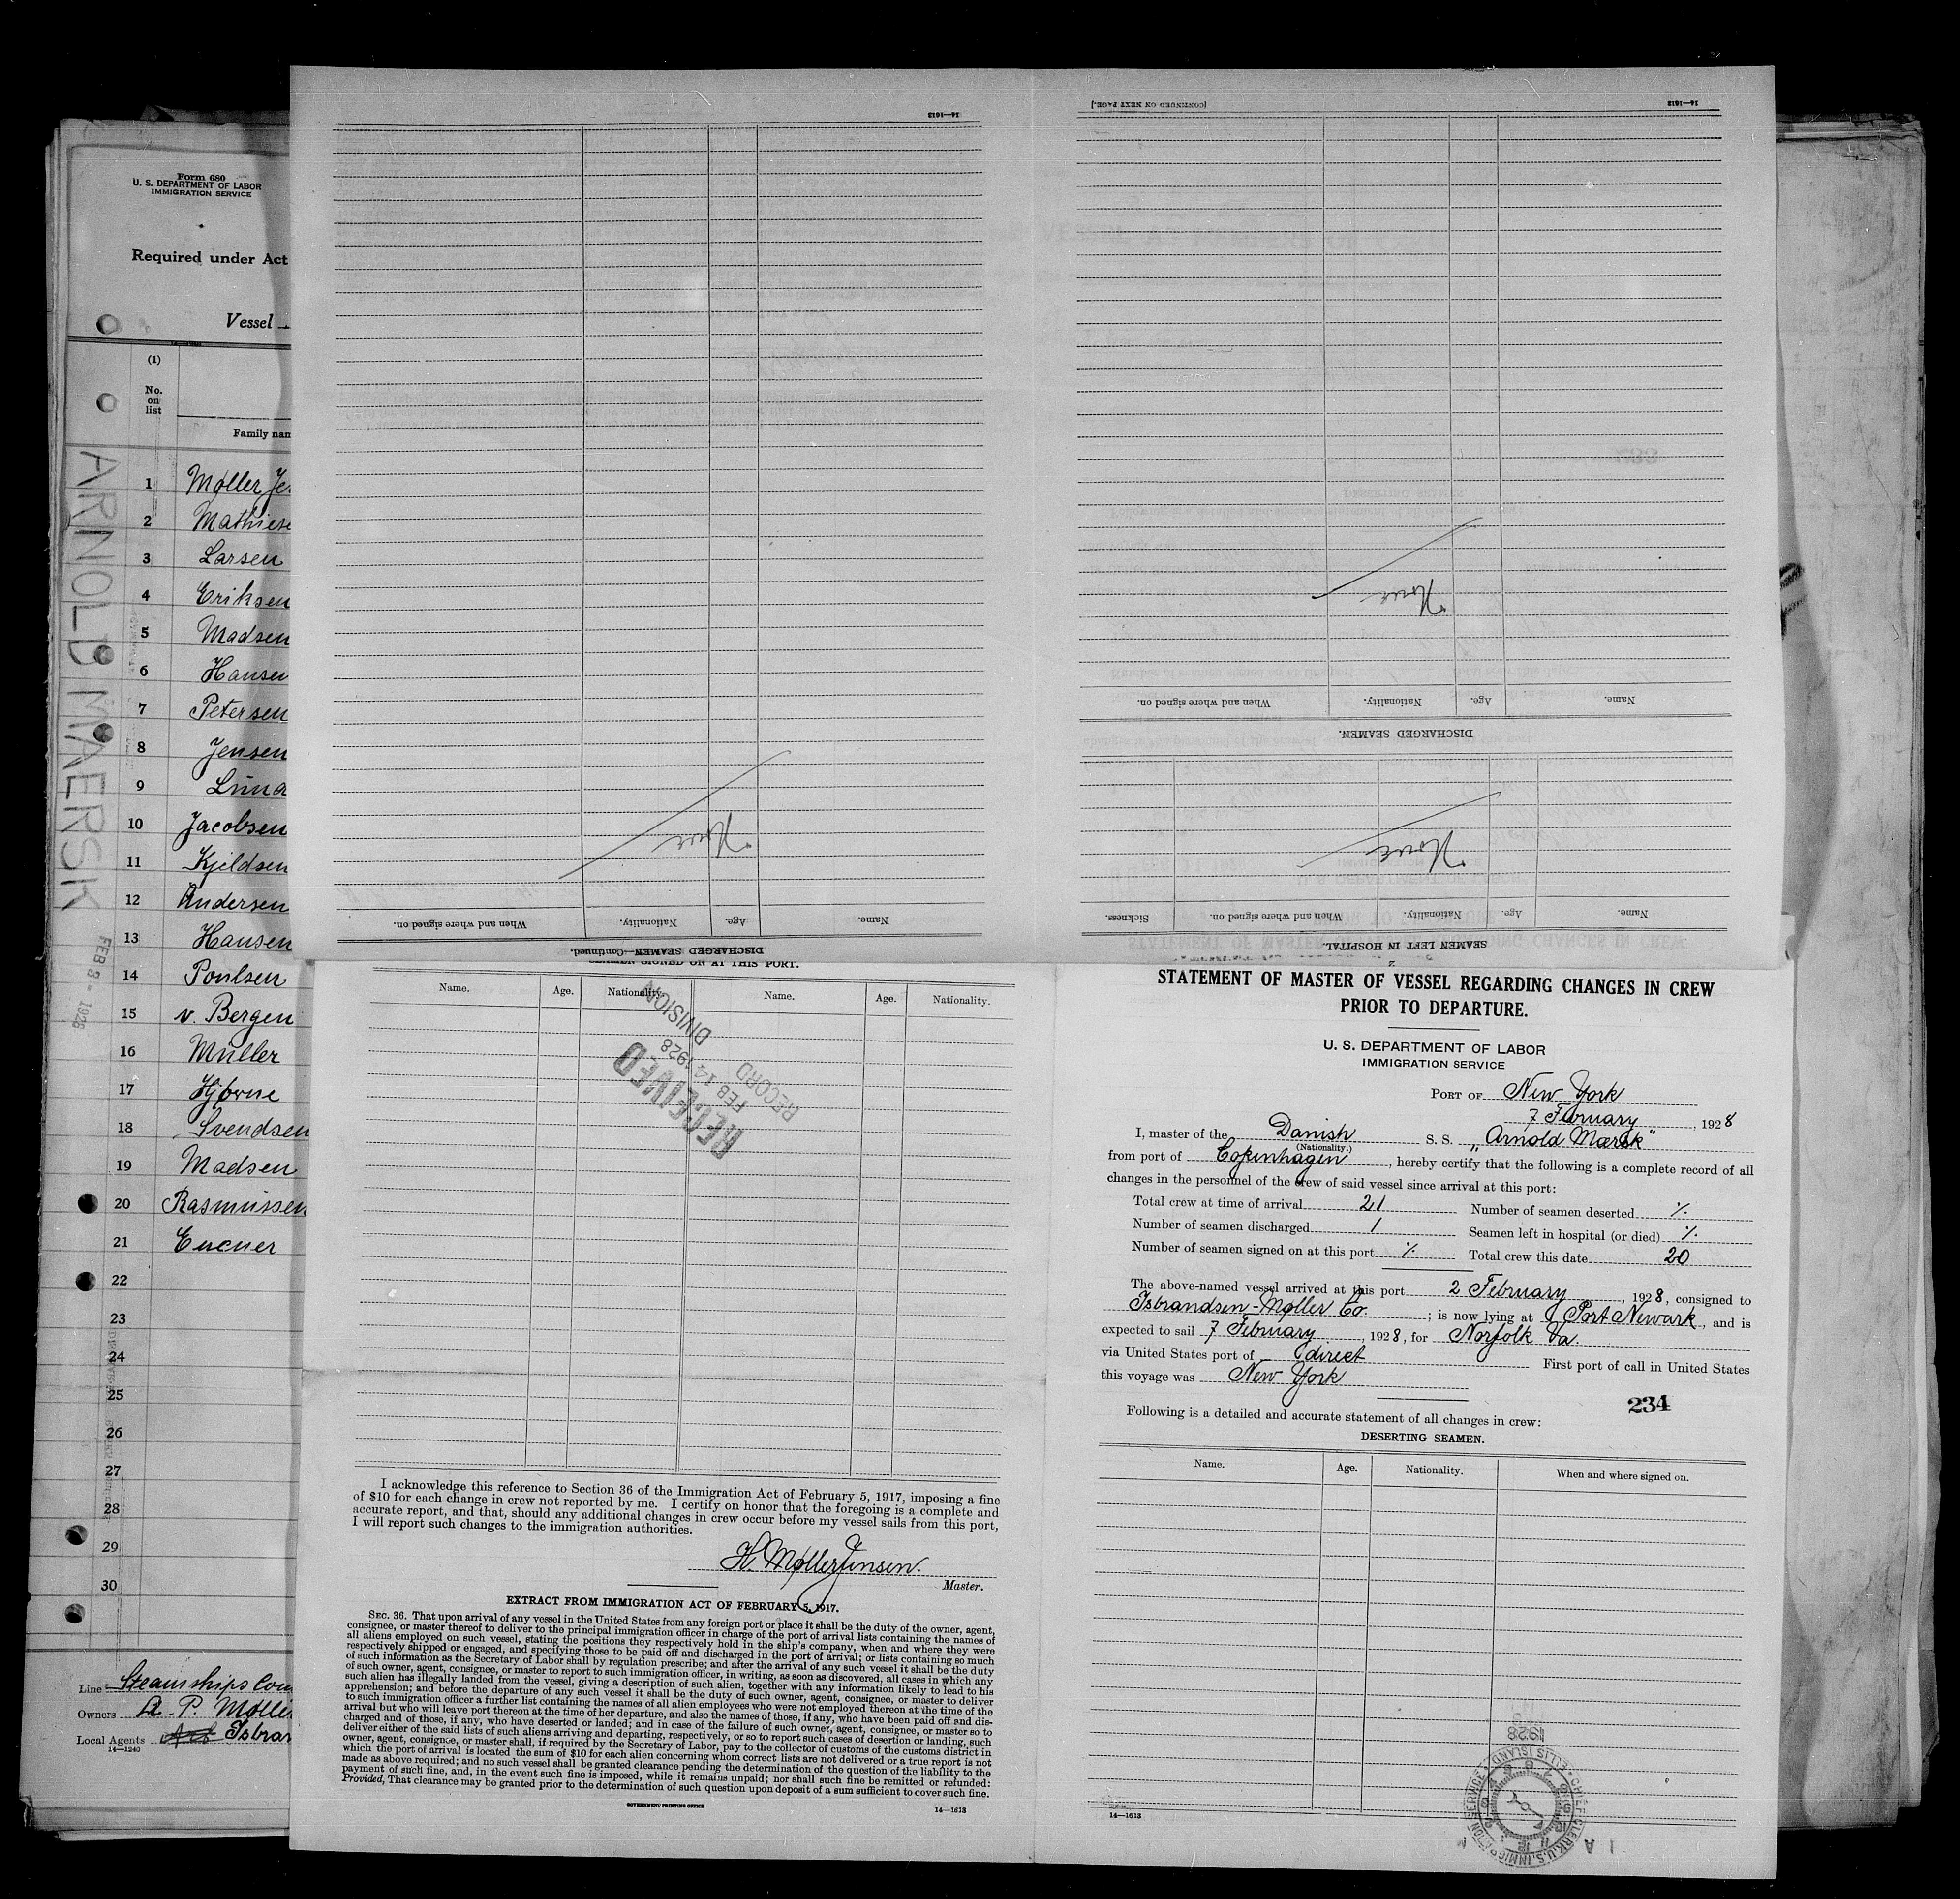 Form 680
U. S. DEPARTMENT OF LABOR
IMMIGRATION SERVICE
Required under Act
Vessel
(1)
No.
on
list
Family nam
ARNOLD MAERSK
FEB 3 - 1928
1 Møller Je
2 Mathiese
3 Larsen
4 Eriksen
5 Madsen
6 Hansen
7 Petersen
8 Jensen
9 Lund
10 Jacobsen
11 Kjeldsen
12 Andersen
13 Hansen
14 Poulsen
15 v. Bergen
16 Müller
17 Hjörne
18 Svendsen
19 Madsen
20 Rasmussen
21
22
23
24
25
26
27
28
29
30
Line Steamships Com
Owners A. P. Møller
Local Agents Isbran
14—1240
14—1613
Name. Age. Nationality. When and where signed on.
None
DISCHARGED SEAMEN—Continued.
[CONTINUED ON NEXT PAGE.] 14—1613
None
Name. Age. Nationality. When and where signed on.
DISCHARGED SEAMEN.
None
Name. Age. Nationality. When and where signed on. Sickness.
SEAMEN LEFT IN HOSPITAL.
SEAMEN SIGNED ON AT THIS PORT.
Name. Age. Nationality. Name. Age. Nationality.
RECEIVED
FEB 14 1928
RECORD
DIVISION
I acknowledge this reference to Section 36 of the Immigration Act of February 5, 1917, imposing a fine
of $10 for each change in crew not reported by me. I certify on honor that the foregoing is a complete and
accurate report, and that, should any additional changes in crew occur before my vessel sails from this port,
I will report such changes to the immigration authorities.
H. Møller Jensen.
Master.
EXTRACT FROM IMMIGRATION ACT OF FEBRUARY 5, 1917.
SEC. 36. That upon arrival of any vessel in the United States from any foreign port or place it shall be the duty of the owner, agent,
consignee, or master thereof to deliver to the principal immigration officer in charge of the port of arrival lists containing the names of
all aliens employed on such vessel, stating the positions they respectively hold in the ship's company, when and where they were
respectively shipped or engaged, and specifying those to be paid off and discharged in the port of arrival; or lists containing so much
of such information as the Secretary of Labor shall by regulation prescribe; and after the arrival of any such vessel it shall be the duty
of such owner, agent, consignee, or master to report to such immigration officer, in writing, as soon as discovered, all cases in which any
such alien has illegally landed from the vessel, giving a description of such alien, together with any information likely to lead to his
apprehension; and before the departure of any such vessel it shall be the duty of such owner, agent, consignee, or master to deliver
to such immigration officer a further list containing the names of all alien employees who were not employed thereon at the time of the
arrival but who will leave port thereon at the time of her departure, and also the names of those, if any, who have been paid off and dis-
charged and of those, if any, who have deserted or landed; and in case of the failure of such owner, agent, consignee, or master so to
deliver either of the said lists of such aliens arriving and departing, respectively, or so to report such cases of desertion or landing, such
owner, agent, consignee, or master shall, if required by the Secretary of Labor, pay to the collector of customs of the customs district in
which the port of arrival is located the sum of $10 for each alien concerning whom correct lists are not delivered or a true report is not
made as above required; and no such vessel shall be granted clearance pending the determination of the question of the liability to the
payment of such fine, and, in the event such fine is imposed, while it remains unpaid; nor shall such fine be remitted or refunded:
Provided, That clearance may be granted prior to the determination of such question upon deposit of a sum sufficient to cover such fine.
GOVERNMENT PRINTING OFFICE 14—1613
STATEMENT OF MASTER OF VESSEL REGARDING CHANGES IN CREW
PRIOR TO DEPARTURE.
U. S. DEPARTMENT OF LABOR
IMMIGRATION SERVICE
PORT OF New York
7 February, 1928
I, master of the Danish S. S. „Arnold Mærsk"
(Nationality.)
from port of Copenhagen, hereby certify that the following is a complete record of all
changes in the personnel of the crew of said vessel since arrival at this port:
Total crew at time of arrival 21 Number of seamen deserted ./.
Number of seamen discharged 1 Seamen left in hospital (or died) ./.
Number of seamen signed on at this port ./. Total crew this date 20
The above-named vessel arrived at this port 2 February, 1928, consigned to
Isbrandsen-Møller Co.; is now lying at Port Newark, and is
expected to sail 7 February, 1928, for Norfolk Va.
via United States port of direct First port of call in United States
this voyage was New York
234
Following is a detailed and accurate statement of all changes in crew:
DESERTING SEAMEN.
Name. Age. Nationality. When and where signed on.
1928
CHIEF CLERK, U.S. IMMIGRATION SERVICE ELLIS ISLAND
14—1613